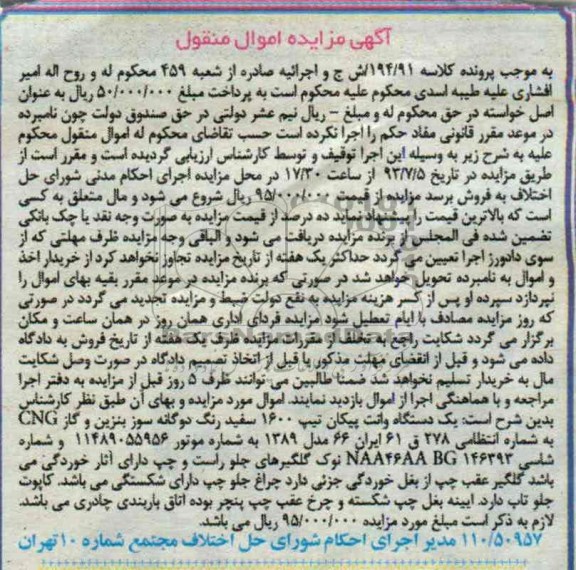 آگهی مزایده اموال منقول
به موجب پرونده کلاسه ۱۹۴/۹۱/ش ج و اجرائیه صادره از شعبه ۴۵۹ محکوم له و روح اله امیر
افشاری علیه طیبه اسدی محکوم علیه محکوم است به پرداخت مبلغ ۵۰/۰۰۰/۰۰۰ ریال به عنوان
اصل خواسته در حق محکوم له و مبلغ – ریال نیم عشر دولتی در حق صندوق دولت چون نامبرده
در موعد مقرر قانونی مفاد حکم را اجرا نکرده است حسب تقاضای محکوم له اموال منقول محکوم
علیه به شرح زیر به وسیله این اجرا توقیف و توسط کارشناس ارزیابی گردیده است و مقرر است از
طریق مزایده در تاریخ ۹۳/۷/۵ از ساعت ۱۷/۳۰ در محل مزایده اجرای احکام مدنی شورای حل
اختلاف به فروش برسد مزایده از قیمت ۹۵/۰۰۰/۰۰۰ ریال شروع می شود و مال متعلق به کسی
است که بالاترین قیمت را پیشنهاد نماید ده درصد از قیمت مزایده به صورت وجه نقد یا چک بانکی
تضمین شده فی المجلس از برنده مزایده دریافت می شود و الباقی وجه مزایده ظرف مهلتی که از
سوی دادورز اجرا تعیین می گردد حداکثر یک هفته از تاریخ مزایده تجاوز نخواهد کرد از خریدار اخذ
و اموال به نامبرده تحویل خواهد شد در صورتی که برنده مزایده در موعد مقرر بقیه بهای اموال را
نپردازد سپرده او پس از کسر هزینه مزایده به نفع دولت ضبط و مزایده تجدید می گردد در صورتی
که روز مزایده مصادف با ایام تعطیل شود مزایده فردای اداری همان روز در همان ساعت و مکان
برگزار می گردد شکایت راجع به تخلف از مقررات مزایده ظرف یک هفته از تاریخ فروش به دادگاه
داده می شود و قبل از انقضای مهلت مذکور یا قبل از اتخاذ تصمیم دادگاه در صورت وصل شکایت
مال به خریدار تسلیم نخواهد شد ضمنا طالبین می توانند ظرف ۵ روز قبل از مزایده به دفتر اجرا
مراجعه و با هماهنگی اجرا از اموال بازدید نمایند. اموال مورد مزایده و بهای آن طبق نظر کارشناس
بدین شرح است: یک دستگاه وانت پیکان تیپ ۱۶۰۰ سفید رنگ دوگانه سوز بنزین و گاز CNG
به شماره انتظامی ۲۷۸ ق ۶۱ ایران ۶۶ مدل ۱۳۸۹ به شماره موتور ۱۱۴۸۹۰۵۵۹۵۶ و شماره
شاسی NAA۴۶AA BG ۱۴۶۳۹۳ نوک گلگیرهای جلو راست و چپ دارای آثار خوردگی می
باشد گلگیر عقب چپ از بغل خوردگی جزئی دارد چراغ جلو چپ دارای شکستگی می باشد. کاپوت
جلو تاب دارد. ایینه بغل چپ شکسته و چرخ عقب چپ پنچر بوده اتاق باربندی چادری می باشد.
لازم به ذکر است مبلغ مورد مزایده ۹۵/۰۰۰/۰۰۰ ریال می باشد.
۱۱۰/۵۰۹۵۷ مدیر اجرای احکام شورای حل اختلاف مجتمع شماره ۱۰تهران